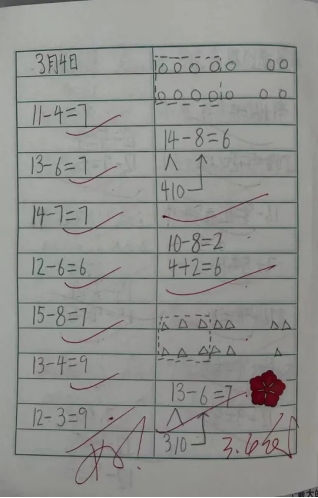 3月4日
11-4=7
13-6=7
14-7=7
12-6=6
15-8=7
13-4=9
12-3=9
14-8=6
4 10
10-8=2
4+2=6
13-6=7
3 10
好!
3.6